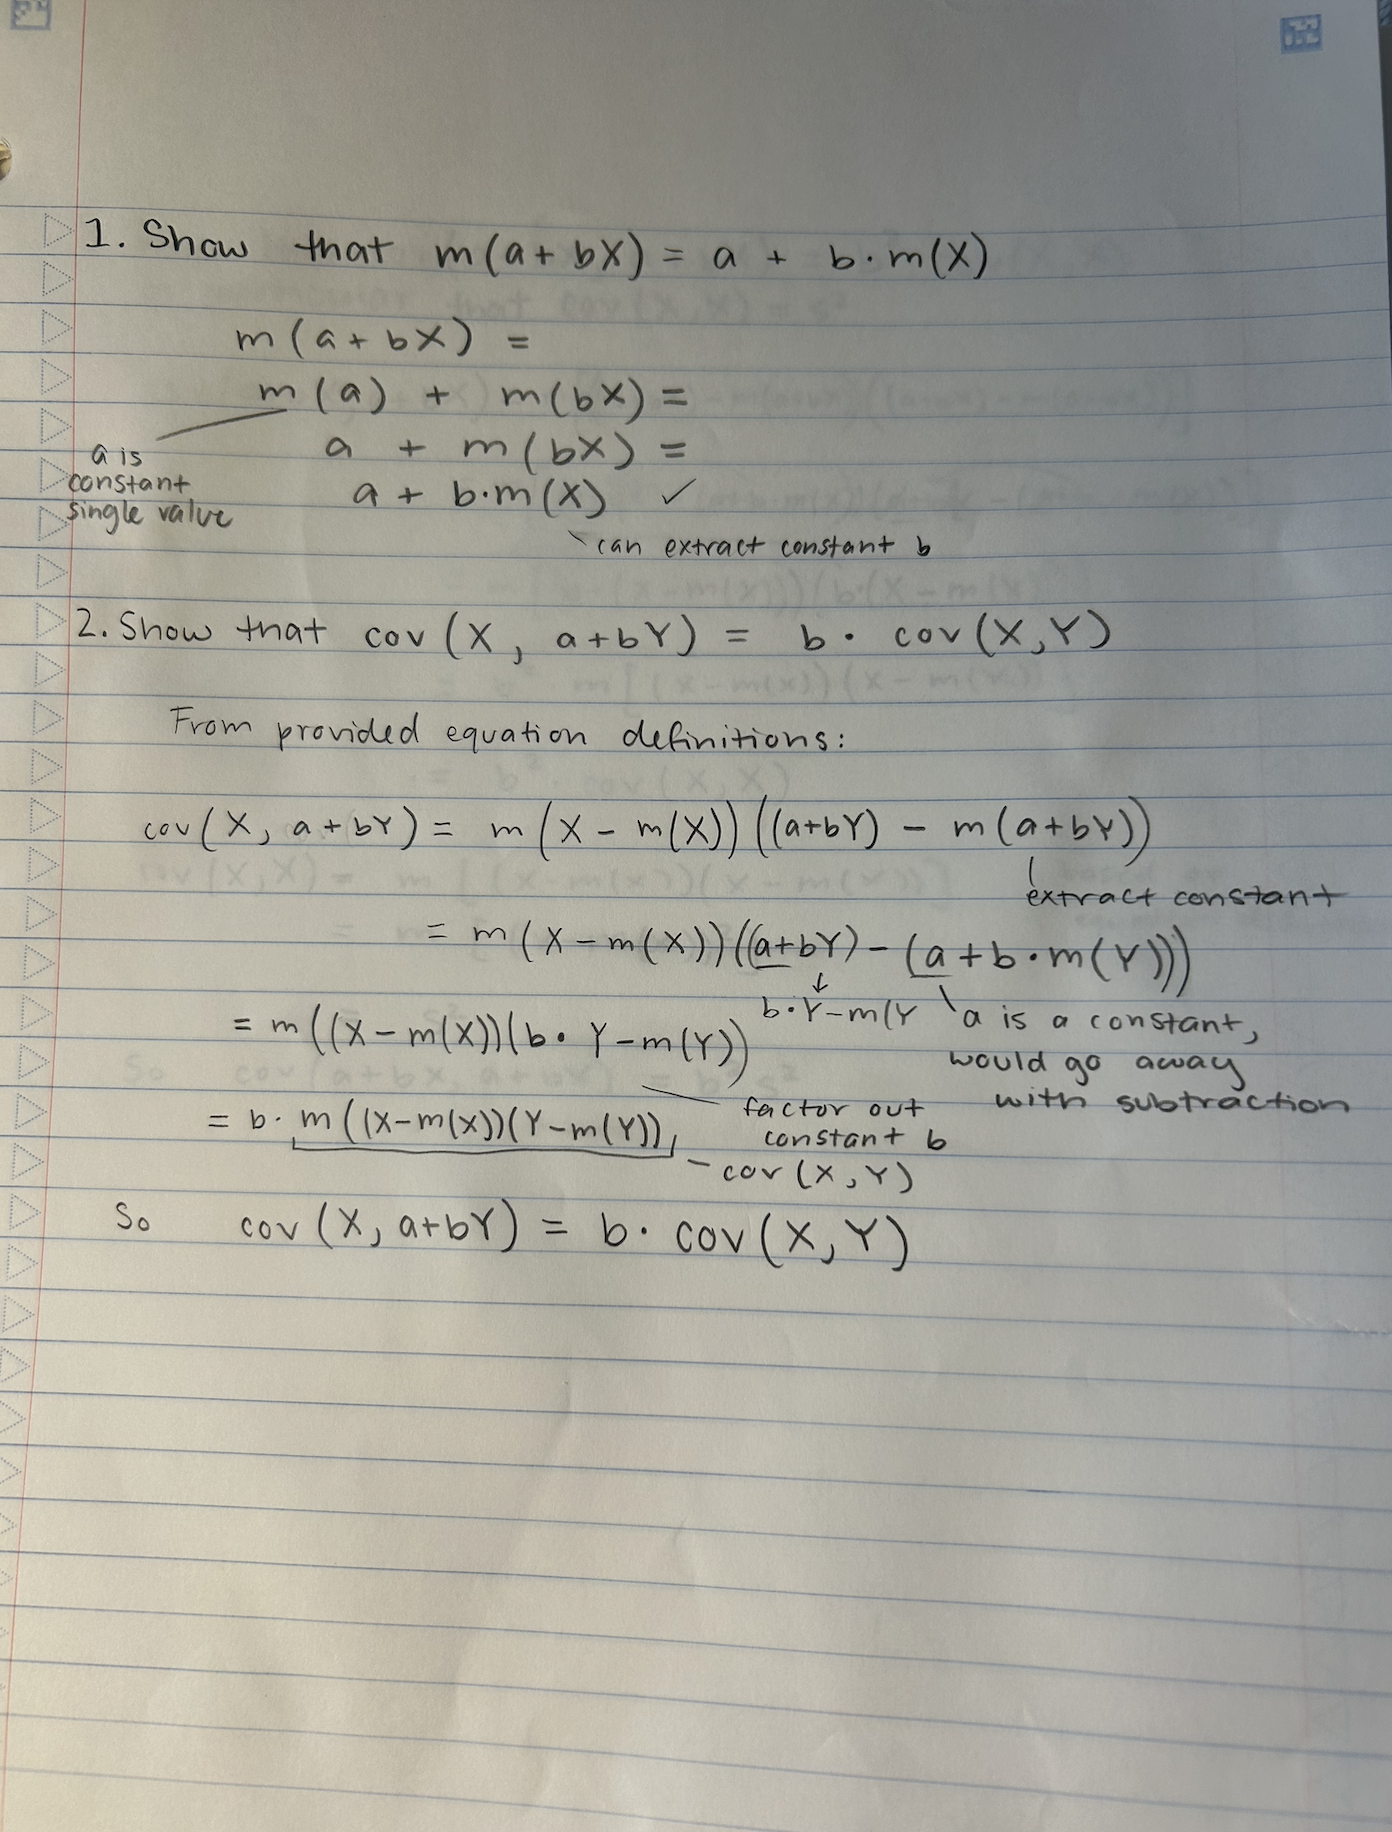 1. Show that m(a+bX) = a + b·m(X)
m(a+bX) =
m(a) + m(bX) =
a + m(bX) =
a is
constant
single value
a + b·m(X) ✓
can extract constant b
2. Show that cov(X, a+bY) = b · cov(X,Y)
From provided equation definitions:
cov(X, a+bY) = m(X - m(X))((a+bY) - m(a+bY))
extract constant
= m(X-m(X))((a+bY)-(a+b·m(Y)))
↓
b·Y-m(Y
a is a constant,
would go away
with subtraction
= m((X-m(X))(b· Y-m(Y))
factor out
constant b
= b· m((X-m(X))(Y-m(Y))
- cov(X,Y)
So cov(X, a+bY) = b· cov(X,Y)